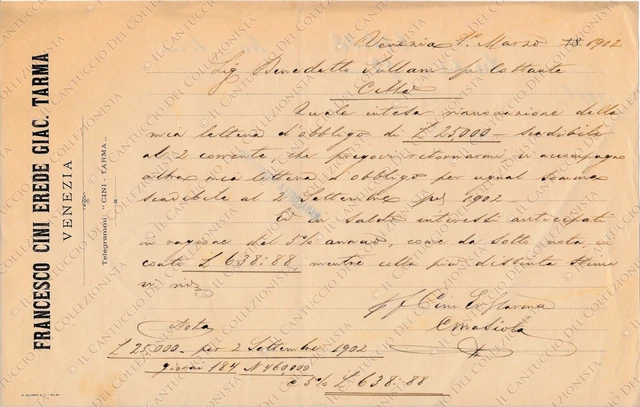 FRANCESCO CINI EREDE GIAC. TARMA
VENEZIA
Telegrammi "CINI - TARMA"
Venezia 1º Marzo 1902
Sig Benedetto Sullam
Città
Quale intesa rinnovazione della
mia lettera d'obbligo di £ 25,000 – scadibile
al 2 corrente, che pregovi ritornarmi, vi accompagno
altra mia lettera d'obbligo per ugual somma
scadibile al 2 Settembre 1902 –
E in saldo interessi anticipati
in ragione del 5% annuo, come da sotto nota, vi
conto £ 638:88, mentre colla più distinta stima
vi
Cini
Nota
£ 25.000 – per 2 Settembre 1902
giorni 184 N 460,000
5% £ 638:88
IL CANTUCCIO DEL COLLEZIONISTA